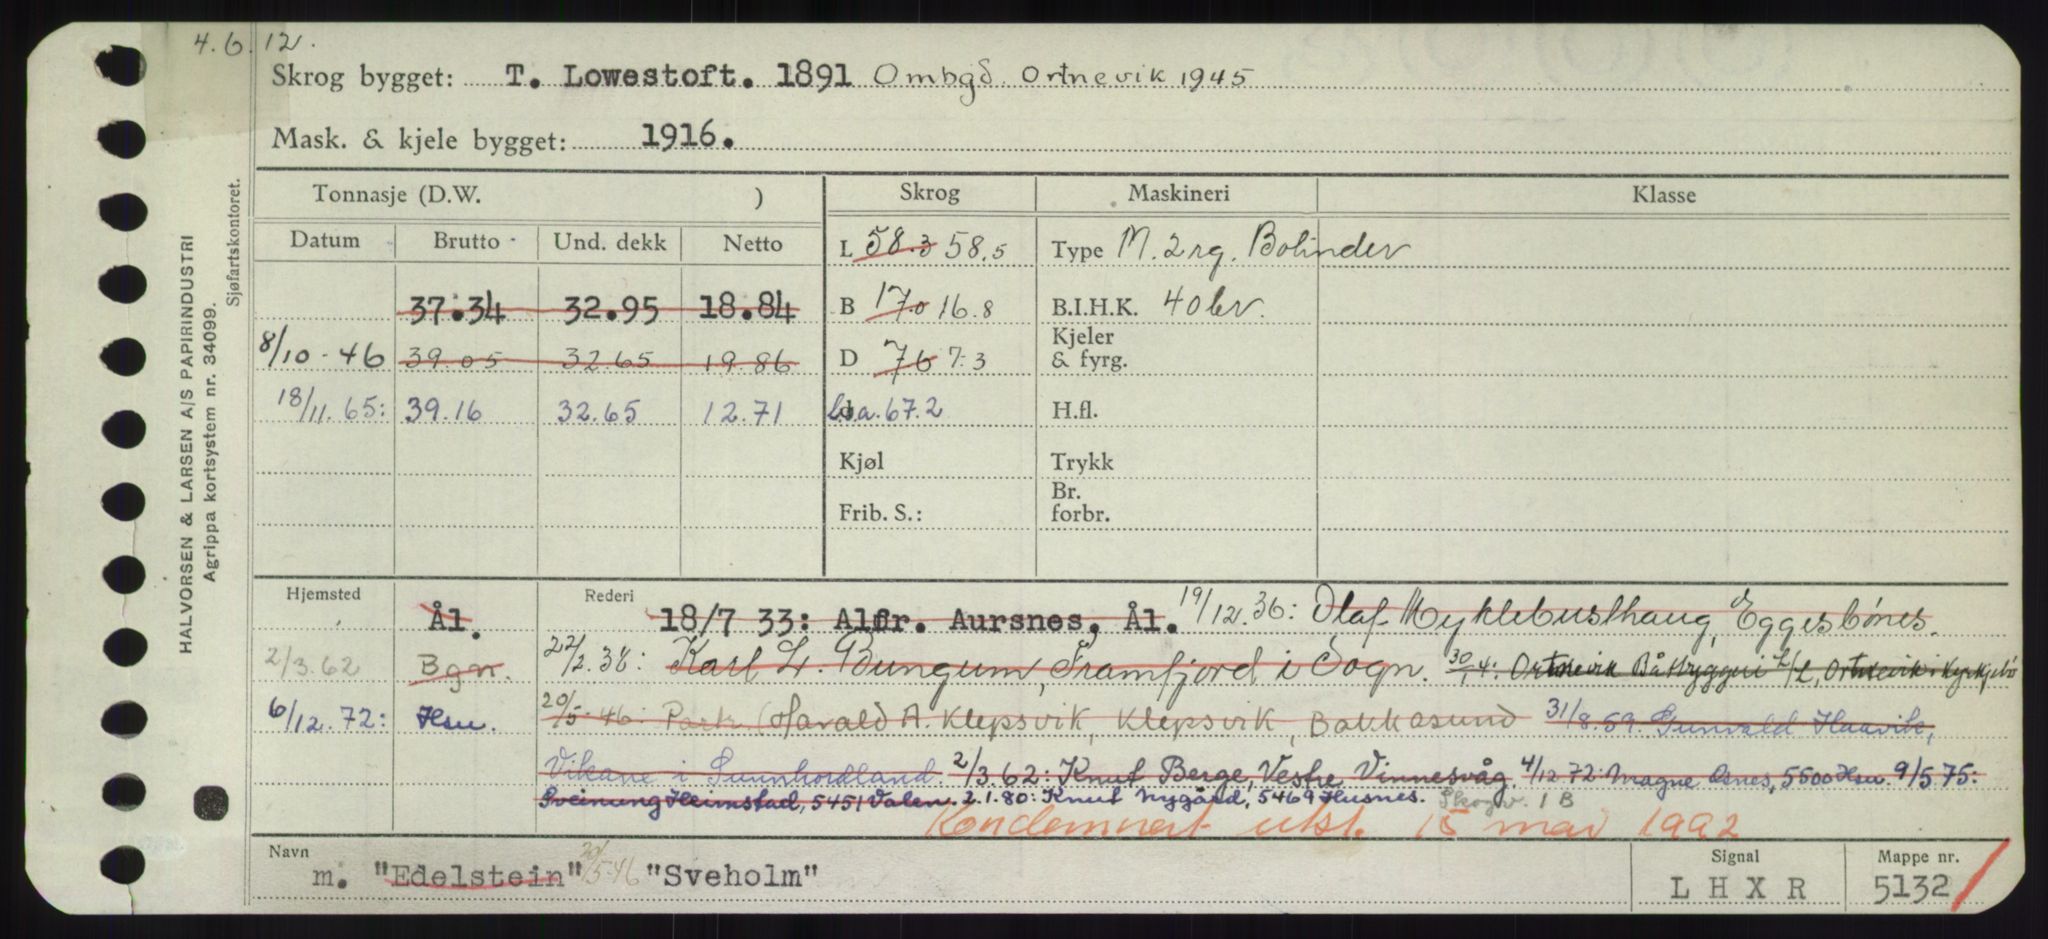 4.6.12.
Skrog bygget: T. Lowestoft. 1891 Ombgd. Ortnevik 1945
Mask. & kjele bygget: 1916.
HALVORSEN & LARSEN A/S PAPIRINDUSTRI
Agrippa kortsystem nr. 34099.
Sjøfartskontoret.
Tonnasje (D.W. ) Skrog Maskineri Klasse
Datum Brutto Und. dekk Netto L 58.3 58.5 Type M. 2 rg. Bolinder
37.34 32.95 18.84 B 17.0 16.8 B.I.H.K. 40
8/10-46 39.05 32.65 19.86 D 76 7.3 Kjeler & fyrg.
18/11.65: 39.16 32.65 12.71 l.o.a. 67.2 H.fl.
Kjøl Trykk
Frib. S.: Br. forbr.
Hjemsted Ål. Rederi 18/7 33: Alfr. Aursnes, Ål. 19/12.36: Olaf Myklebusthaug, Eggesbönes.
2/3.62 Bgn. 22/2.38: Karl L. Bungum, Framfjord i Sogn. 30/4: Ortnevik Båtbyggeri L/L, Ortnevik i Kyrkjebö
6/12.72: Hsu. 20/5-46: Partr. (Harald A. Klepsvik, Klepsvik, Bakkasund 31/8.59. Gunvald Haavik,
Vikane i Sunnhordland. 2/3.62: Knut Berge, Vestre Vinnesvåg. 4/12 72: Magne Osnes, 5500 Hsu. 9/5.75:
Sveinung Heimstad, 5451 Valen. 2.1.80: Knut Nygård, 5469 Husnes. 1 B
Kondemnert utsl. 15 mai 1992
Navn m. "Edelstein" 20/5-46 "Sveholm" Signal LHXR Mappe nr. 5132